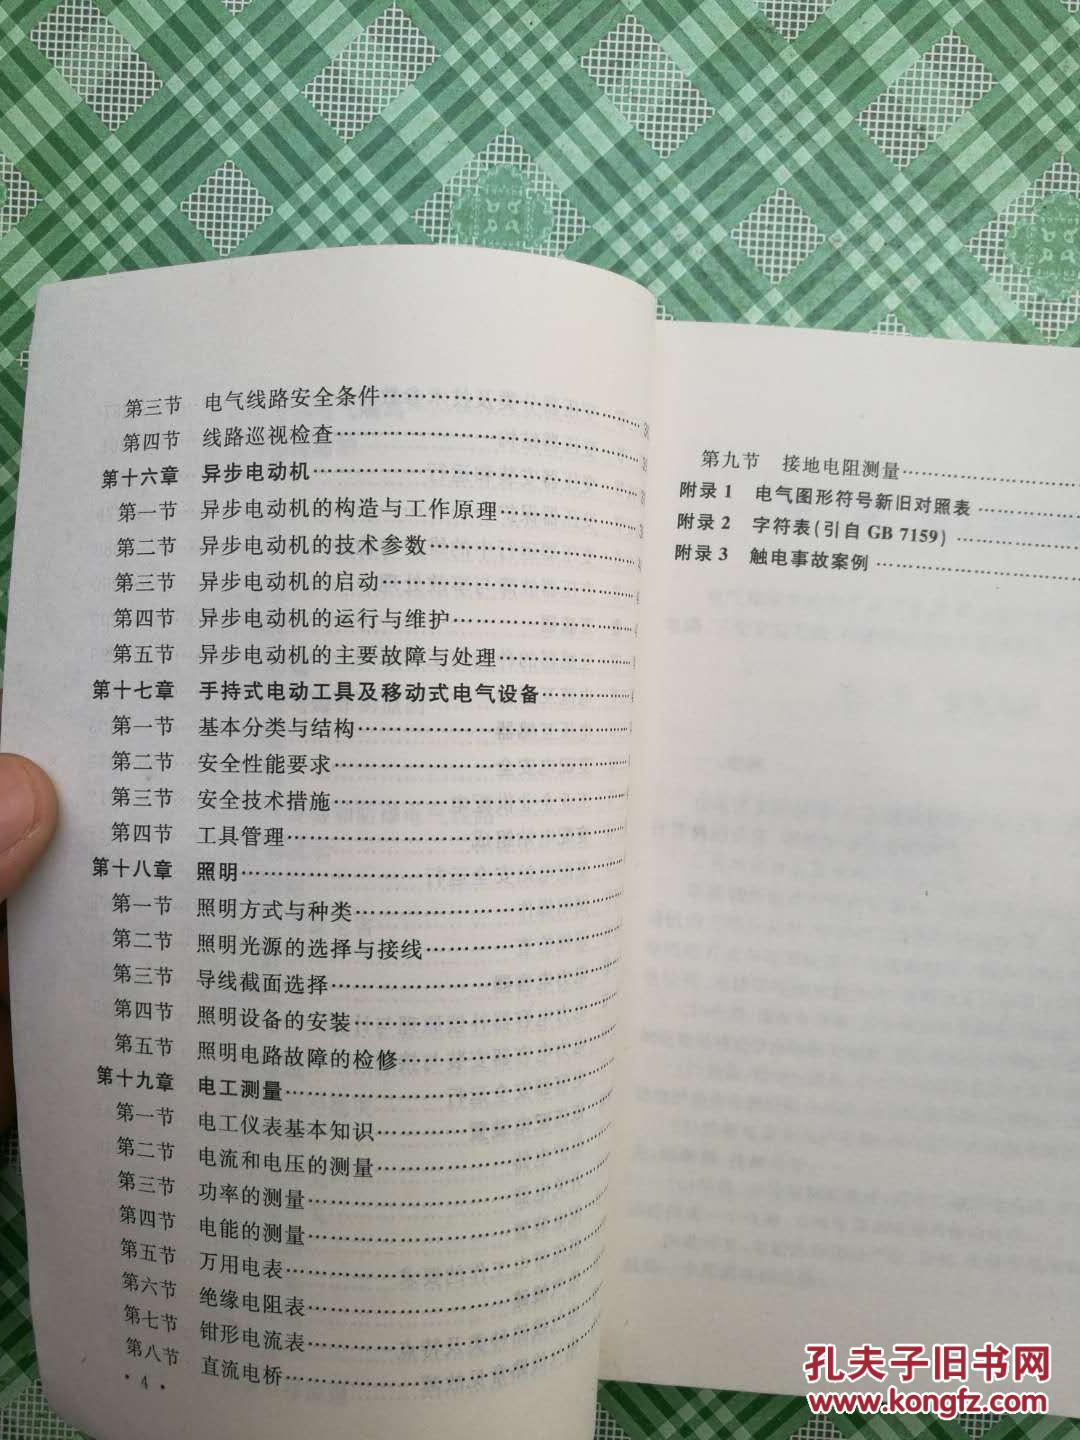 第三节 电气线路安全条件
第四节 线路巡视检查
第十六章 异步电动机
第一节 异步电动机的构造与工作原理
第二节 异步电动机的技术参数
第三节 异步电动机的启动
第四节 异步电动机的运行与维护
第五节 异步电动机的主要故障与处理
第十七章 手持式电动工具及移动式电气设备
第一节 基本分类与结构
第二节 安全性能要求
第三节 安全技术措施
第四节 工具管理
第十八章 照明
第一节 照明方式与种类
第二节 照明光源的选择与接线
第三节 导线截面选择
第四节 照明设备的安装
第五节 照明电路故障的检修
第十九章 电工测量
第一节 电工仪表基本知识
第二节 电流和电压的测量
第三节 功率的测量
第四节 电能的测量
第五节 万用电表
第六节 绝缘电阻表
第七节 钳形电流表
第八节 直流电桥
· 4 ·
第九节 接地电阻测量
附录 1 电气图形符号新旧对照表
附录 2 字符表(引自 GB 7159)
附录 3 触电事故案例
孔夫子旧书网
www.kongfz.com